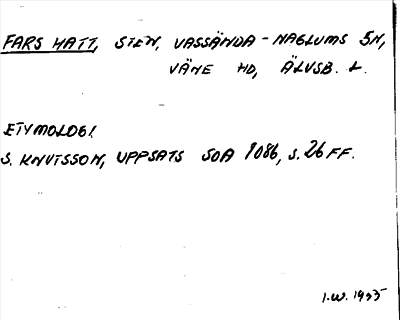 FARS HATT, STEN, VASSÄNDA-NAGLUMS SN,
VÄNE HD, ÄLVSB. L.
ETYMOLOGI.
S. KNUTSSON, UPPSATS SOA 1086, S. 26 FF.
I.W. 1935